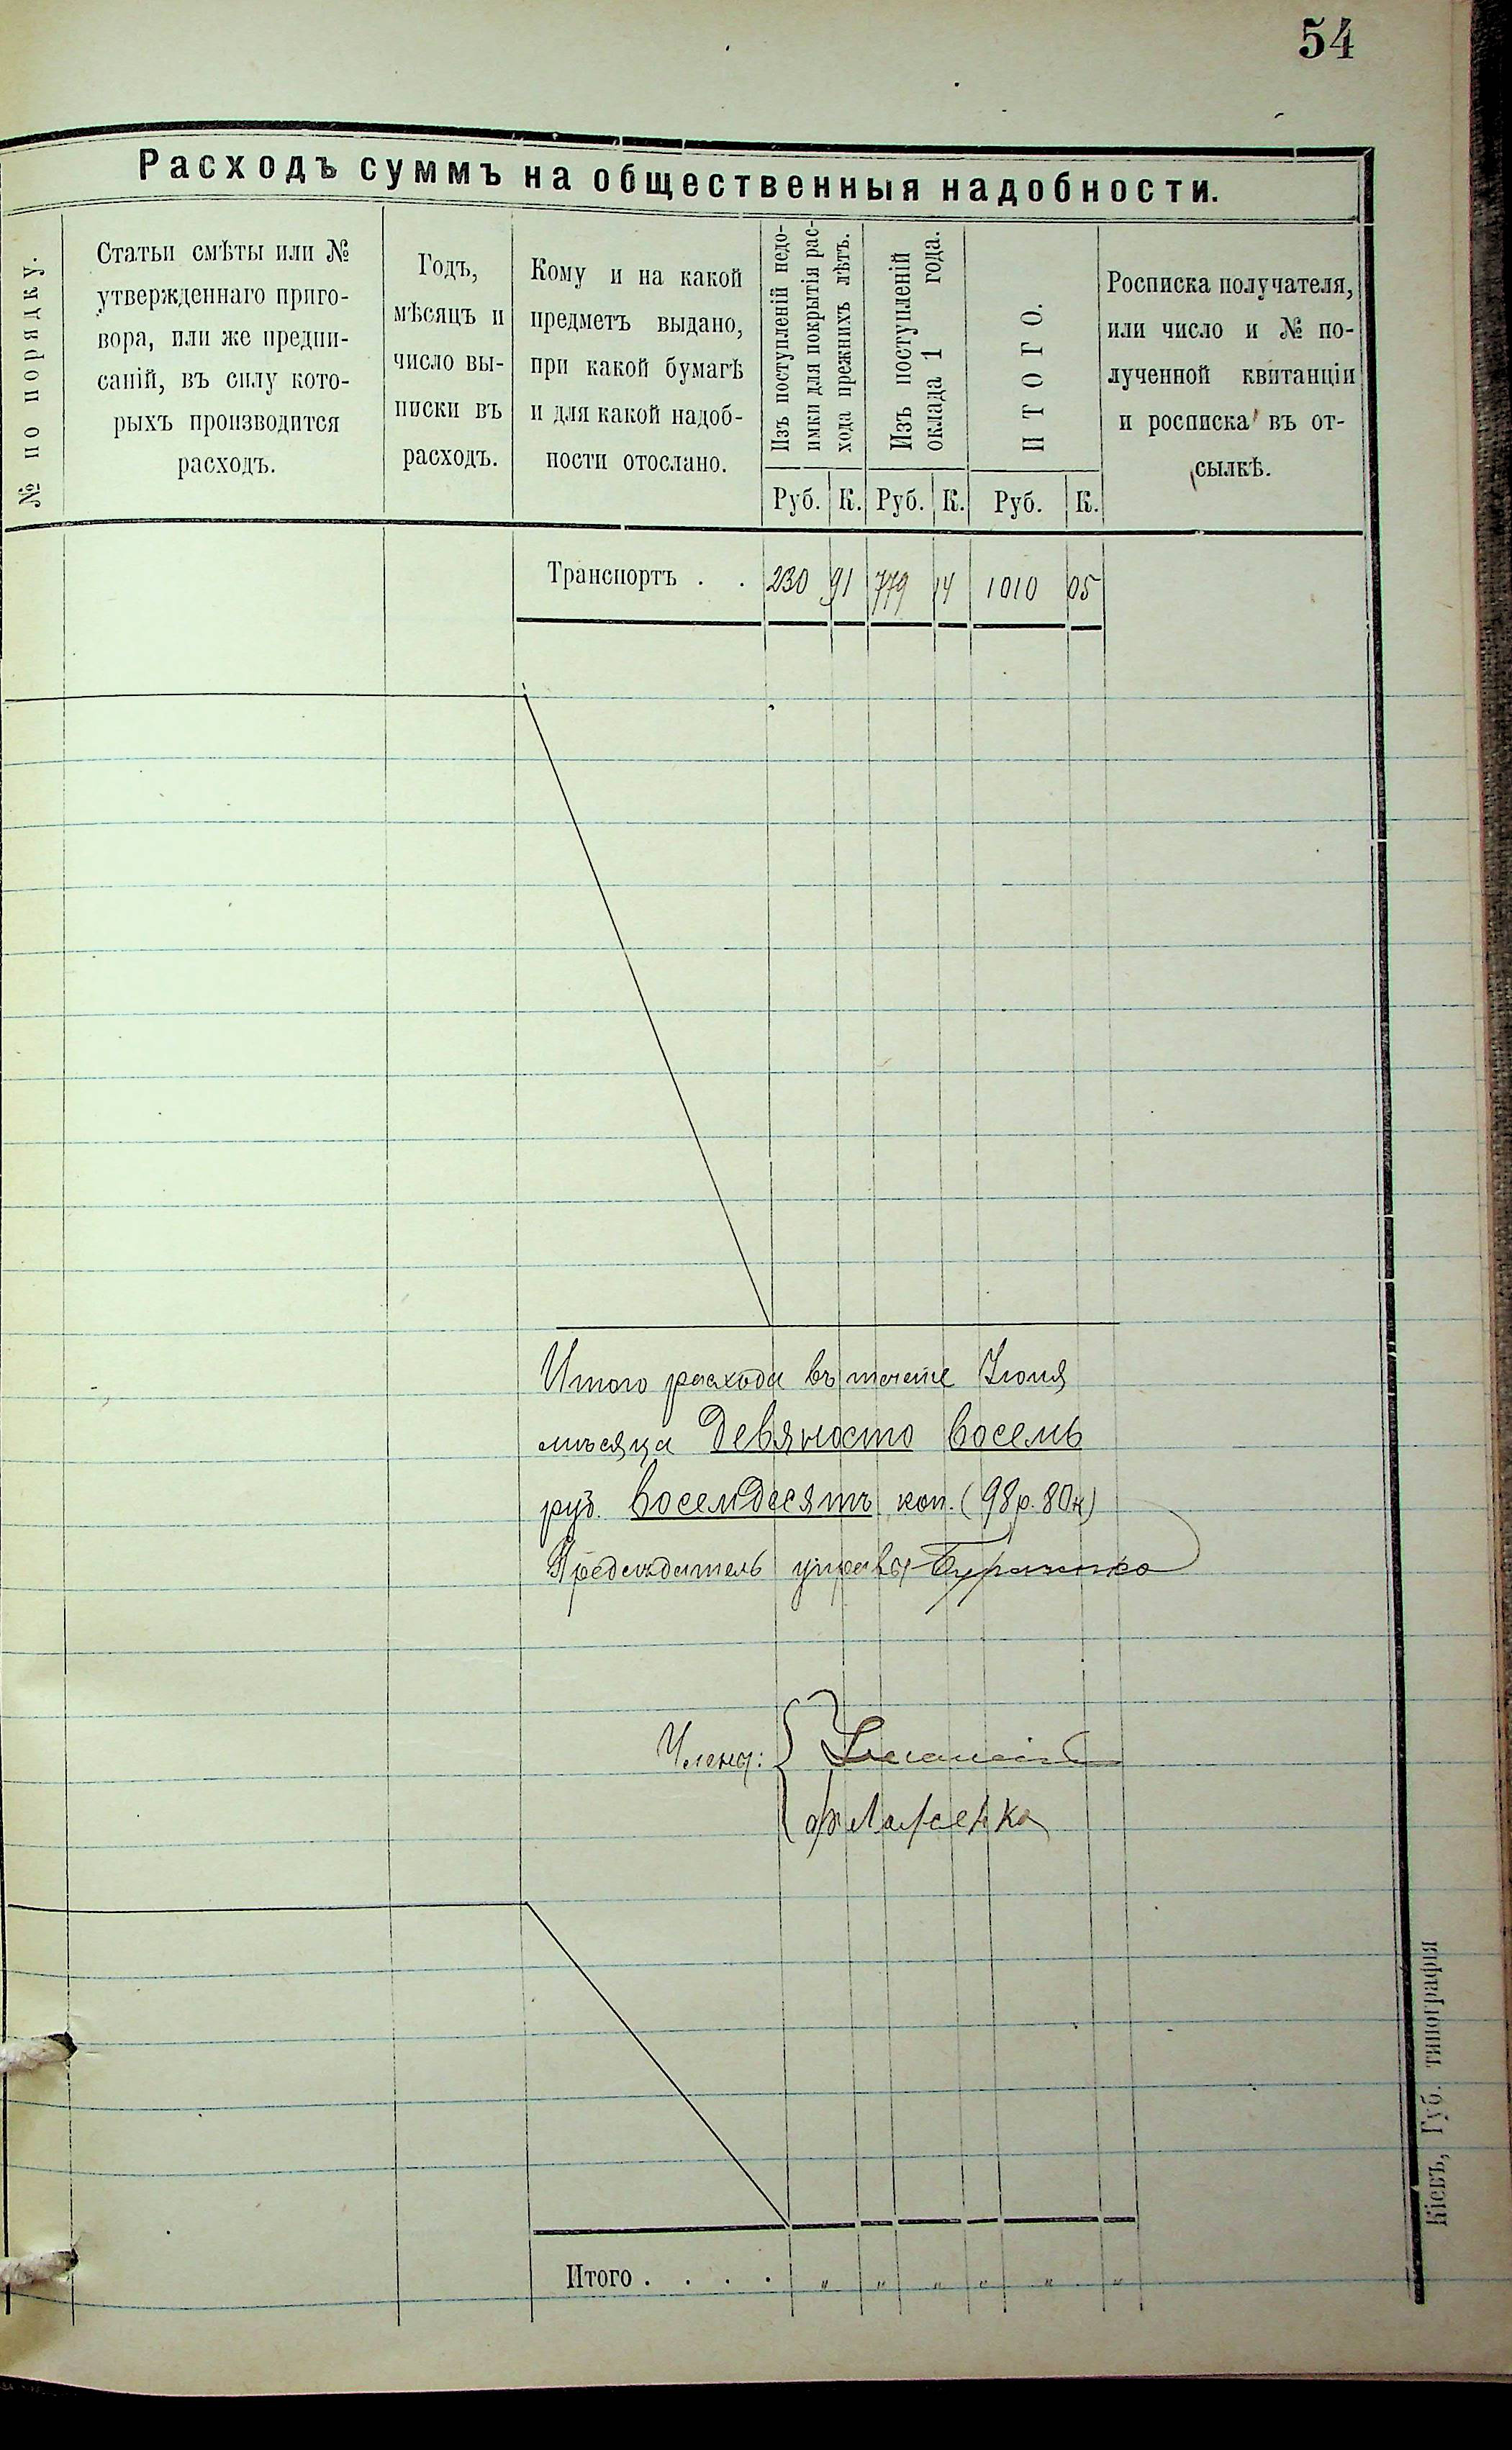 54
Расходъ суммъ на общественныя надобности.
№ по порядку.
Статьи смѣты или №
утвержденнаго приго-
вора, или же предпи-
саній, въ силу кото-
рыхъ производится
расходъ.
Годъ,
мѣсяцъ и
число вы-
писки въ
расходъ.
Кому и на какой
предметъ выдано,
при какой бумагѣ
и для какой надоб-
ности отослано.
Изъ поступленій недо-
имки для покрытія рас-
хода прежнихъ лѣтъ.
Изъ поступленій
оклада 1 года.
ИТОГО.
Росписка получателя,
или число и № по-
лученной квитанціи
и росписка въ от-
сылкѣ.
Руб. К. Руб. К. Руб. К.
Транспортъ . . 230 91 779 14 1010 05
Итого расхода въ
мѣсяца Девяносто восемь
руб. восемдесятъ коп. (98 р. 80 к)
Предсѣдатель управы
Члены:
Итого . . . . " " " " " "
Кіевъ, Губ. типографія